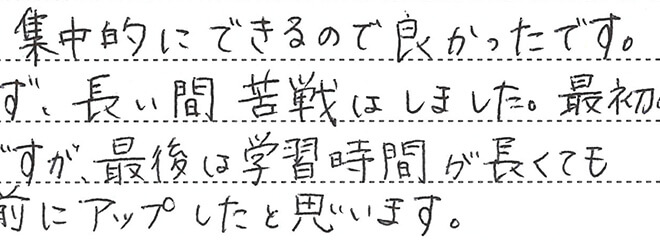 集中的にできるので良かったです。
ず、長い間苦戦はしました。最初
ですが、最後は学習時間が長くても
前にアップしたと思います。